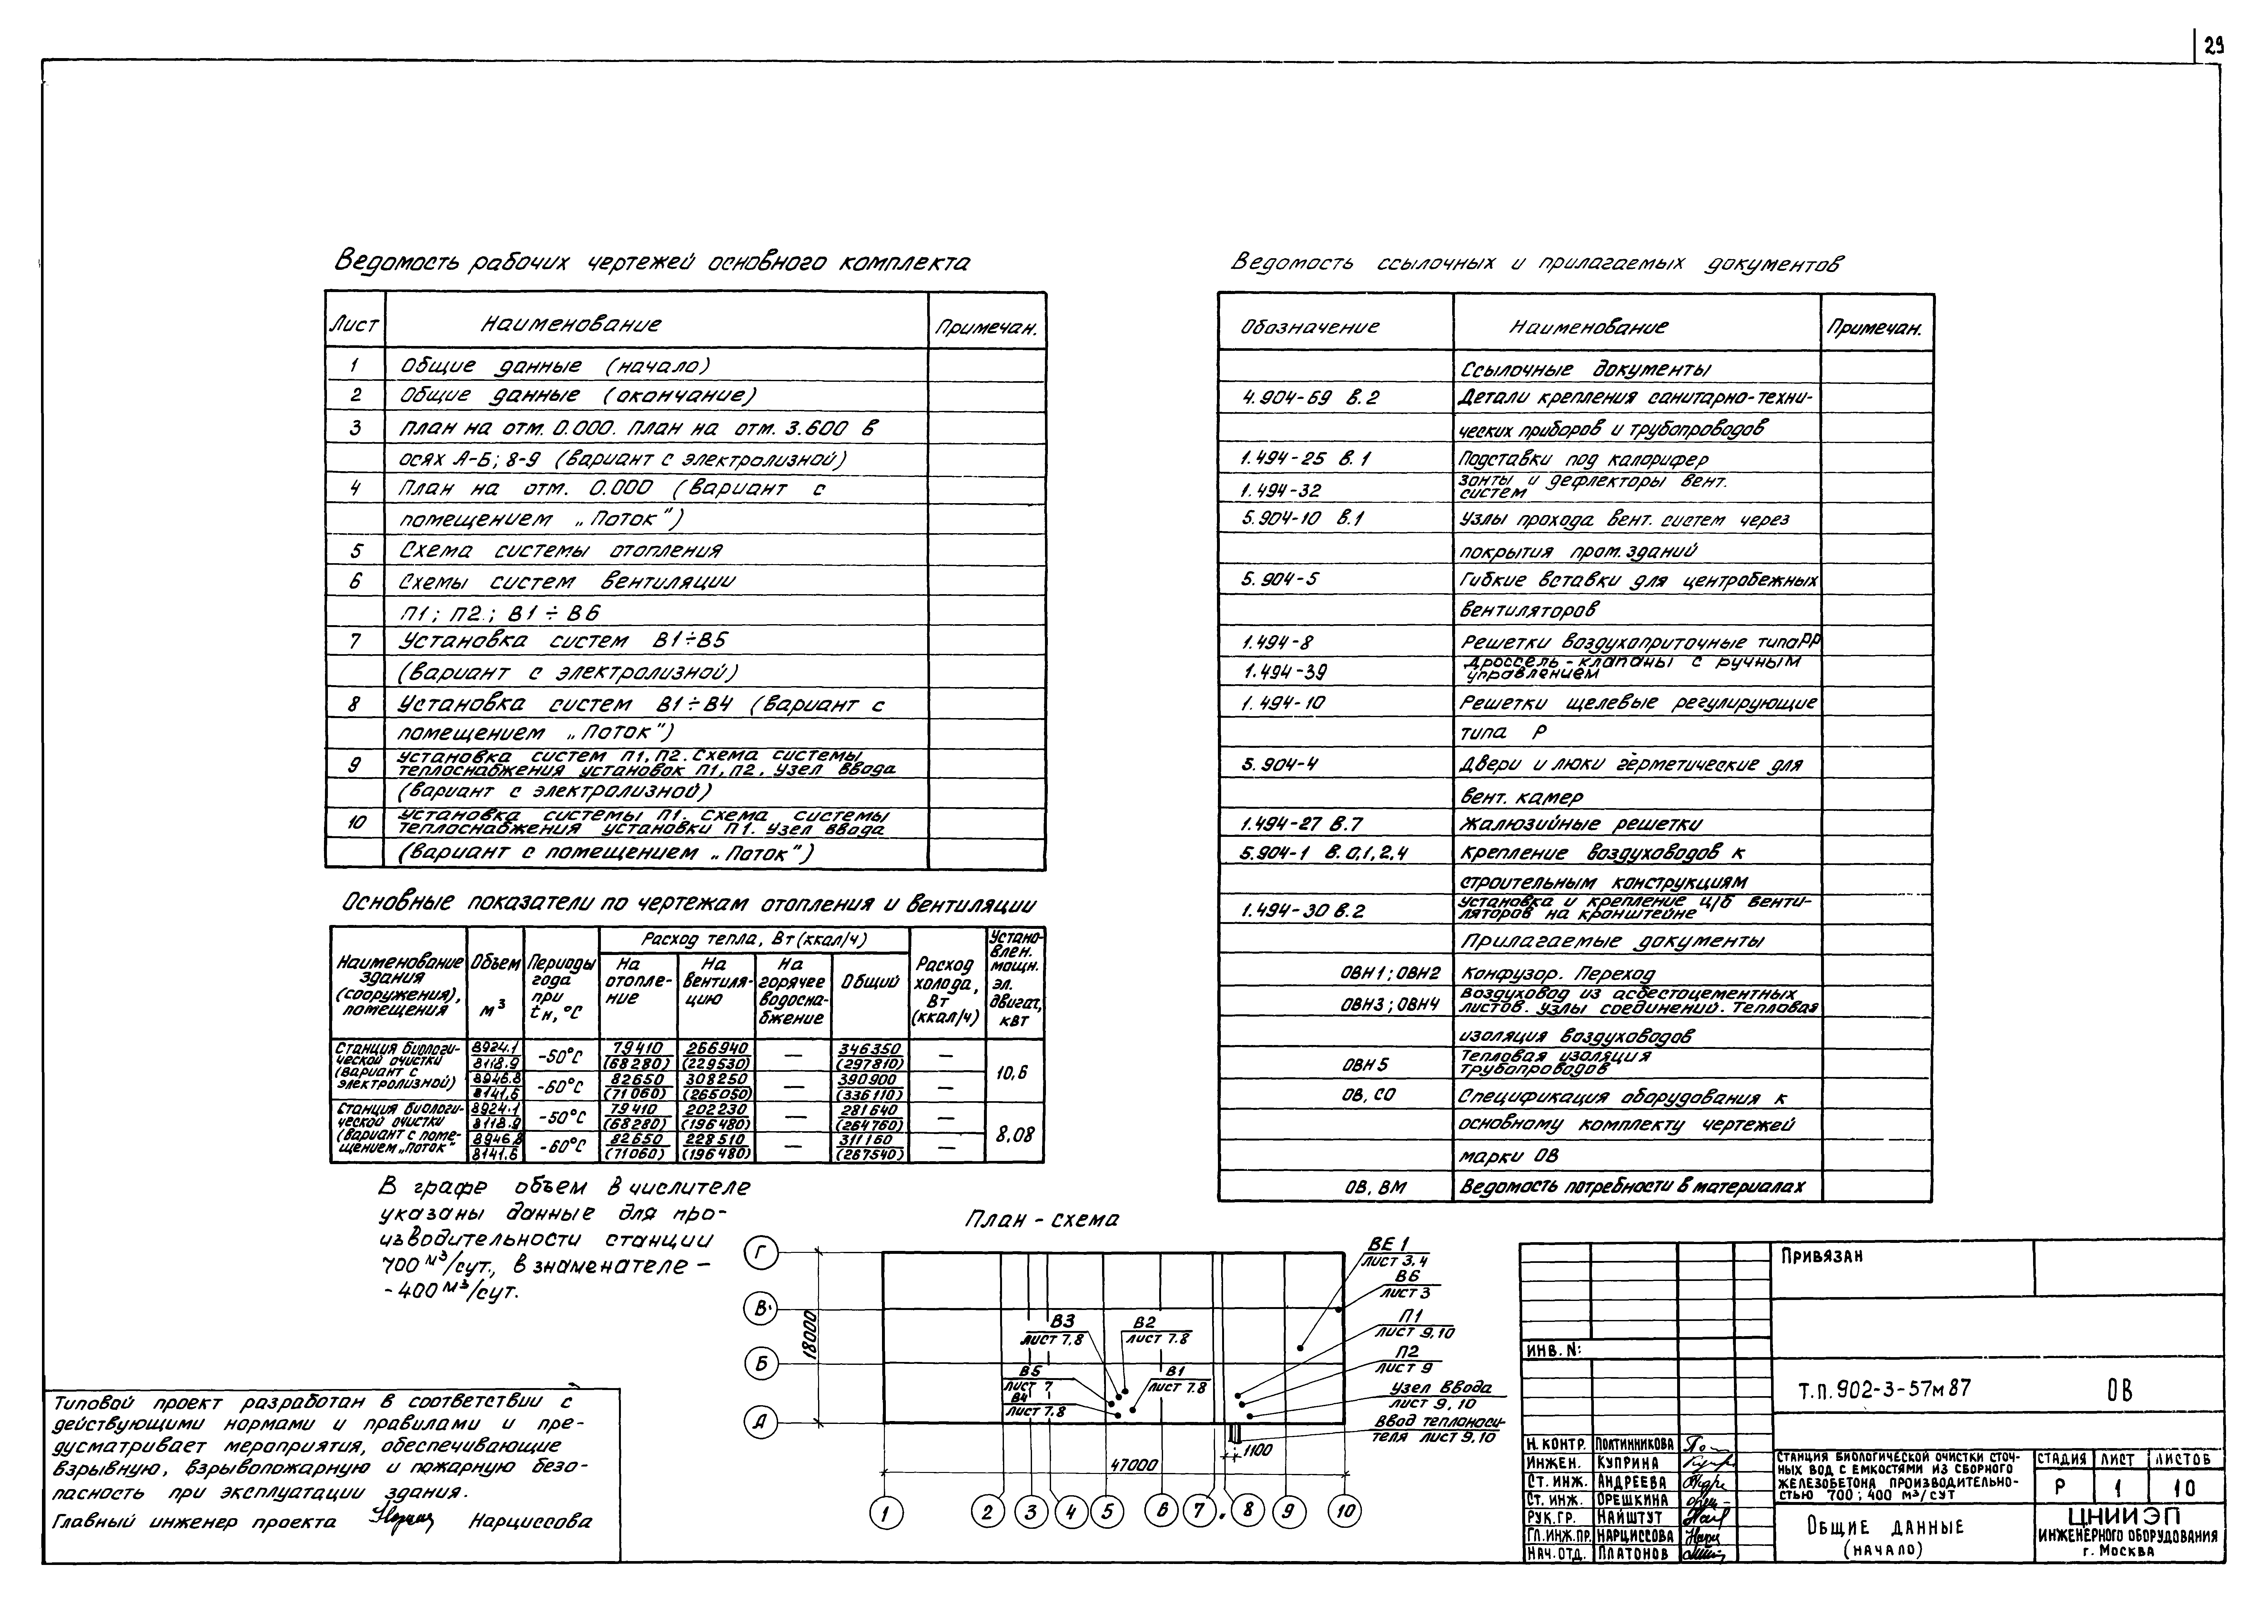 29
Ведомость рабочих чертежей основного комплекта
Лист Наименование Примечан.
1 Общие данные (начало)
2 Общие данные (окончание)
3 План на отм. 0.000. План на отм. 3.600 в
осях А-Б; 8-9 (вариант с электролизной)
4 План на отм. 0.000 (вариант с
помещением „Поток")
5 Схема системы отопления
6 Схемы систем вентиляции
П1; П2; В1÷В6
7 Установка систем В1÷В5
(вариант с электролизной)
8 Установка систем В1÷В4 (вариант с
помещением „Поток")
9 Установка систем П1, П2. Схема системы
теплоснабжения установок П1, П2. Узел ввода
(вариант с электролизной)
10 Установка системы П1. Схема системы
теплоснабжения установки П1. Узел ввода
(вариант с помещением „Поток")
Ведомость ссылочных и прилагаемых документов
Обозначение Наименование Примечан.
Ссылочные документы
4.904-69 В.2 Детали крепления санитарно-техни-
ческих приборов и трубопроводов
1.494-25 В.1 Подставки под калорифер
1.494-32 Зонты и дефлекторы вент.
систем
5.904-10 В.1 Узлы прохода вент. систем через
покрытия пром. зданий
5.904-5 Гибкие вставки для центробежных
вентиляторов
1.494-8 Решетки воздухоприточные типа РР
1.494-39 Дроссель-клапаны с ручным
управлением
1.494-10 Решетки щелевые регулирующие
типа Р
5.904-4 Двери и люки герметические для
вент. камер
1.494-27 В.7 Жалюзийные решетки
5.904-1 В.0,1,2,4 Крепление воздуховодов к
строительным конструкциям
1.494-30 В.2 Установка и крепление ц/б венти-
ляторов на кронштейне
Прилагаемые документы
ОВН1; ОВН2 Конфузор. Переход
ОВН3; ОВН4 Воздуховод из асбестоцементных
листов. Узлы соединений. Тепловая
изоляция воздуховодов
ОВН5 Тепловая изоляция
трубопроводов
ОВ, СО Спецификация оборудования к
основному комплекту чертежей
марки ОВ
ОВ, ВМ Ведомость потребности в материалах
Основные показатели по чертежам отопления и вентиляции
Наименование здания (сооружения), помещения
Объем м³
Периоды года при tн, °С
Расход тепла, Вт (ккал/ч)
На отопле-ние
На вентиля-цию
На горячее водосна-бжение
Общий
Расход холода, Вт (ккал/ч)
Устано-влен. мощн. эл. двигат, квт
Станция биологи-
ческой очистки
(вариант с
электролизной)
8924.1 79410 266940 346350
8118.9 -50°С (68280) (229530) — (297810) —
8946.8 82650 308250 390900
8141.6 -60°С (71060) (265050) — (336110) —
10,6
Станция биологи-
ческой очистки
(вариант с поме-
щением „Поток"
8924.1 79410 202230 281640
8118.9 -50°С (68280) (196480) — (264760) —
8946.8 82650 228510 311160
8141.6 -60°С (71060) (196480) — (267540) —
8,08
В графе объем в числителе
указаны данные для про-
изводительности станции
700 м³/сут., в знаменателе -
- 400 м³/сут.
План - схема
Г
В
Б
А
18000
47000
1100
ВЕ 1
лист 3,4
В6
лист 3
П1
лист 9,10
П2
лист 9
Узел ввода
лист 9,10
Ввод теплоноси-
теля лист 9,10
В3
лист 7.8
В2
лист 7.8
В5
лист 7
В4
лист 7,8
В1
лист 7.8
1 2 3 4 5 6 7 8 9 10
Типовой проект разработан в соответствии с
действующими нормами и правилами и пре-
дусматривает мероприятия, обеспечивающие
взрывную, взрывопожарную и пожарную безо-
пасность при эксплуатации здания.
Главный инженер проекта Нарциссова
Привязан
ИНВ. N:
Т.П. 902-3-57м87 ОВ
Н. КОНТР. ПОЛТИННИКОВА
ИНЖЕН. КУПРИНА
СТ. ИНЖ. АНДРЕЕВА
СТ. ИНЖ. ОРЕШКИНА
РУК. ГР. НАЙШТУТ
ГЛ. ИНЖ. ПР. НАРЦИССОВА
НАЧ. ОТД. ПЛАТОНОВ
СТАНЦИЯ БИОЛОГИЧЕСКОЙ ОЧИСТКИ СТОЧ-
НЫХ ВОД С ЕМКОСТЯМИ ИЗ СБОРНОГО
ЖЕЛЕЗОБЕТОНА ПРОИЗВОДИТЕЛЬНО-
СТЬЮ 700; 400 М³/СУТ
СТАДИЯ ЛИСТ ЛИСТОВ
Р 1 10
ОБЩИЕ ДАННЫЕ
(НАЧАЛО)
ЦНИИЭП
ИНЖЕНЕРНОГО ОБОРУДОВАНИЯ
г. МОСКВА